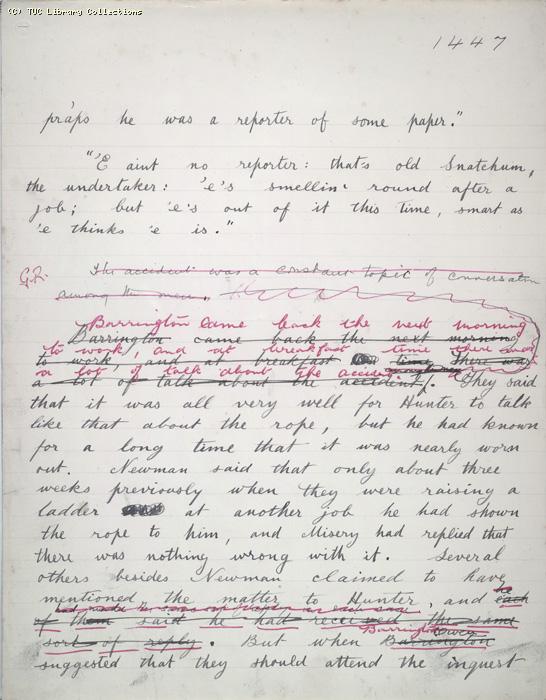 (C) TUC Library Collections
1447
pràps he was a reporter of some paper."
"'E aint no reporter: that's old Snatchum,
the undertaker: 'e's smellin' round after a
job; but 'e's out of it this time, smart as
'e thinks 'e is."
G.R.
The accident was a constant topic of conversation
among the men.
Barrington came back the next morning
Barrington came back the next morning
to work, and at breakfast time there was
to work, and at breakfast time There was
a lot of talk about the accident
a lot of talk about the accident. They said
that it was all very well for Hunter to talk
like that about the rope, but he had known
for a long time that it was nearly worn
out. Newman said that only about three
weeks previously when they were raising a
ladder at another job he had shown
the rope to him, and Misery had replied that
there was nothing wrong with it. Several
others besides Newman claimed to have
mentioned the matter to Hunter, and each
he
had made the same reply in each case
of them said he had received the same
sort of reply. But when Barrington
Barrington Owen
suggested that they should attend the inquest